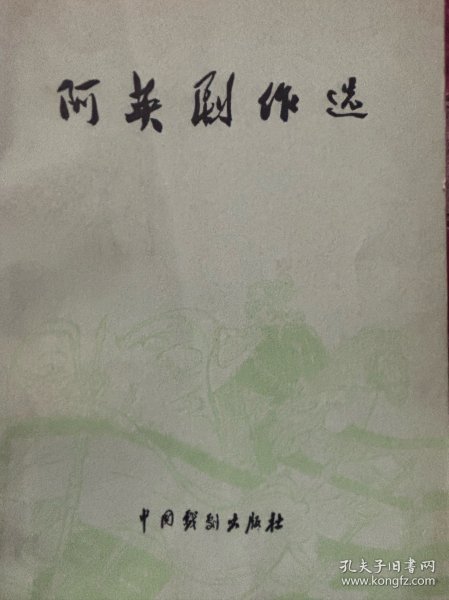 阿英剧作选
中国戏剧出版社
孔夫子旧书网
www.kongfz.com